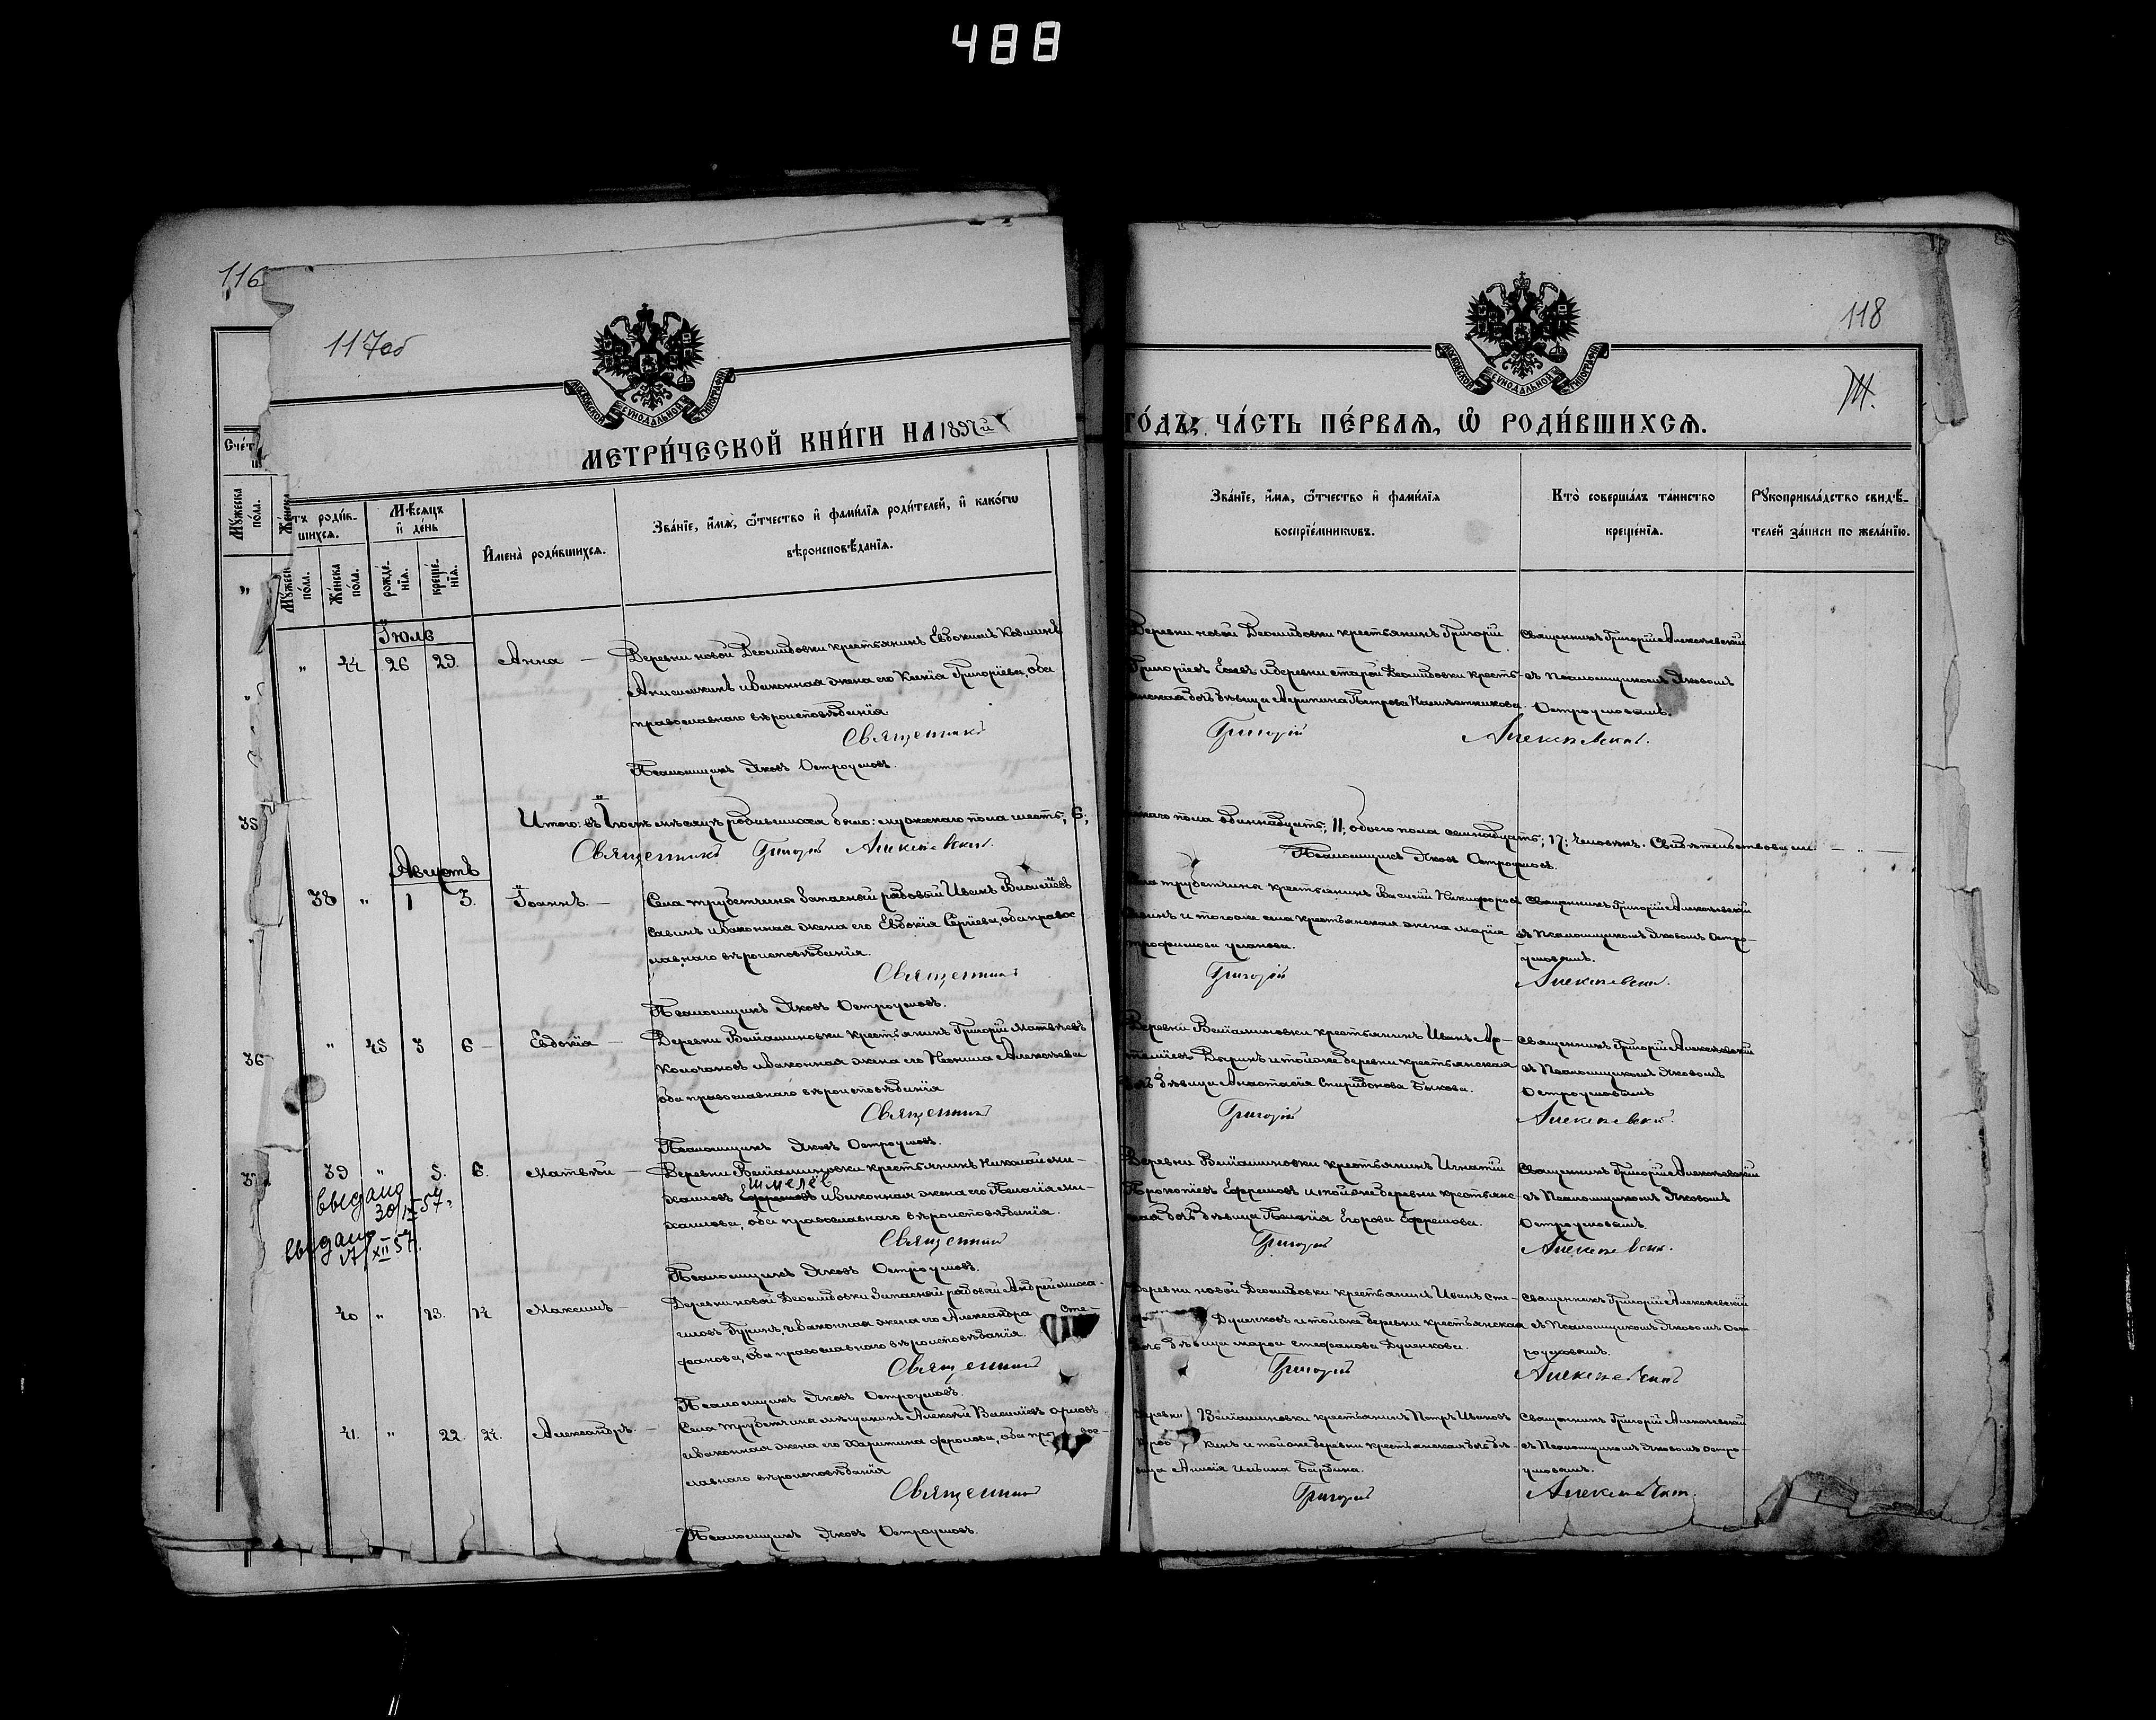 488
116
117об
118
МОСКОВСКОЙ СУНОДАЛЬНОЙ ТИПОГРАФІИ
МОСКОВСКОЙ СУНОДАЛЬНОЙ ТИПОГРАФІИ
МЕТРИ́ЧЕСКОЙ КНИ́ГИ НА 1897й
ГО́ДЪ, ЧА́СТЬ ПЕ́РВАЯ, Ѡ҆ РОДИ́ВШИХСЯ.
Счетъ
Мꙋ́жеска по́ла.
Же́нска
родив-
шихся.
Мꙋ́жеска по́ла.
Же́нска по́ла.
Мѣ́сяцъ и҆ де́нь
рожде́-нїѧ.
креще́-нїѧ.
И҆мена̀ роди́вшихся.
Зва́нїе, и҆́мѧ, ѻ҆́тчество и҆ фами́лїѧ роди́телей, и҆ како́гѡ
вѣроисповѣ́данїѧ.
Зва́нїе, и҆́мѧ, ѻ҆́тчество и҆ фами́лїѧ
воспрїе́мниковъ.
Кто̀ соверша́лъ та́инство
креще́нїѧ.
Рꙋкоприкла́дство свидѣ́-
телей за́писи по жела́нїю.
Іюль
" 44 26 29. Анна — Деревни новой Деомидовки крестьянинъ Евдокимъ Козминъ
Анисимкинъ и законная жена его Ксенія Григоріева, оба
православнаго вѣроисповѣданія
Священникъ
Псаломщикъ Яковъ Остроумовъ.
Деревни новой Деомидовки крестьянинъ Григорій
Григоріевъ и деревни старой Деомидовки кресть-
янская дочь дѣвица Петрова
Григорій
Священникъ Григорій Алексѣевскій
съ Псаломщикомъ Яковомъ
Остроумовымъ.
Алексѣевскій.
Итого: въ Іюлѣ мѣсяцѣ родившихся было: мужескаго пола шесть; 6;
женскаго пола одиннадцать; 11; обоего пола семнадцать; 17: человѣкъ. Свидѣтельствовали:
Священникъ Григорій Алексѣевскій.
Псаломщикъ Яковъ Остроумовъ.
35
Августъ
38 " 1 3. Іоаннъ. — Села Трубетчина запасный рядовый Иванъ Василіевъ
Савинъ и законная жена его Евдокія Сергіева, оба право-
славнаго вѣроисповѣданія.
Священникъ
Псаломщикъ Яковъ Остроумовъ.
Села Трубетчина крестьянинъ Василій Никифоровъ
Савинъ и тогоже села крестьянская жена Марія
Трофимова
Григорій
Священникъ Григорій Алексѣевскій
съ Псаломщикомъ Яковомъ Остро-
умовымъ.
Алексѣевскій.
36
" 45 3 6 — Евдокія — Деревни Веніаминовки крестьянинъ Григорій Матвѣевъ
Колчановъ и законная жена его Алексѣева
оба православнаго вѣроисповѣданія
Священникъ
Псаломщикъ Яковъ Остроумовъ.
Деревни Веніаминовки крестьянинъ Иванъ Ар-
теміевъ и тойже деревни крестьянская
дочь дѣвица Анастасія Спиридонова Быкова.
Григорій
Священникъ Григорій Алексѣевскій
съ Псаломщикомъ Яковомъ
Остроумовымъ
Алексѣевскій.
37
39 " 5. 6. Матвѣй — Деревни Веніаминовки крестьянинъ Николай Ми-
Шмелёв
хаиловъ Ефремовъ и законная жена его Пелагія Ми-
хаилова, оба православнаго вѣроисповѣданія.
Священникъ
Псаломщикъ Яковъ Остроумовъ.
выдано
30/IX-57г
выдано
17/XII 57г.
Деревни Веніаминовки крестьянинъ Игнатій
Прокопіевъ Ефремовъ и тойже деревни крестьянс-
кая дочь дѣвица Пелагія Егорова Ефремова.
Григорій
Священникъ Григорій Алексѣевскій
съ Псаломщикомъ Яковомъ
Остроумовымъ.
Алексѣевскій.
40 " 13. 14 Максимъ — Деревни новой Деомидовки запасный рядовой Андрей Миха-
иловъ Гуринъ, и законная жена его Александра Сте-
фанова, оба православнаго вѣроисповѣданія.
Священникъ
Псаломщикъ Яковъ Остроумовъ.
Деревни новой Деомидовки крестьянинъ Иванъ Сте-
Дуленковъ и тойже деревни крестьянская
дочь дѣвица Марія Стефанова Дуленкова.
Григорій
Священникъ Григорій Алексѣевскій
съ Псаломщикомъ Яковомъ Ост-
роумовымъ.
Алексѣевскій
41. " 22. 24. Александръ. — Села Трубетчина мѣщанинъ Алексѣй Василіевъ Орловъ
и законная жена его Харитина Фролова, оба право-
славнаго вѣроисповѣданія
Священникъ
Псаломщикъ Яковъ Остроумовъ.
Деревни Веніаминовки крестьянинъ Петръ Ивановъ
и тойже деревни крестьянская дочь дѣ-
вица Ильина
Григорій
Священникъ Григорій Алексѣевскій
съ Псаломщикомъ Яковомъ Остро-
умовымъ.
Алексѣевскій.